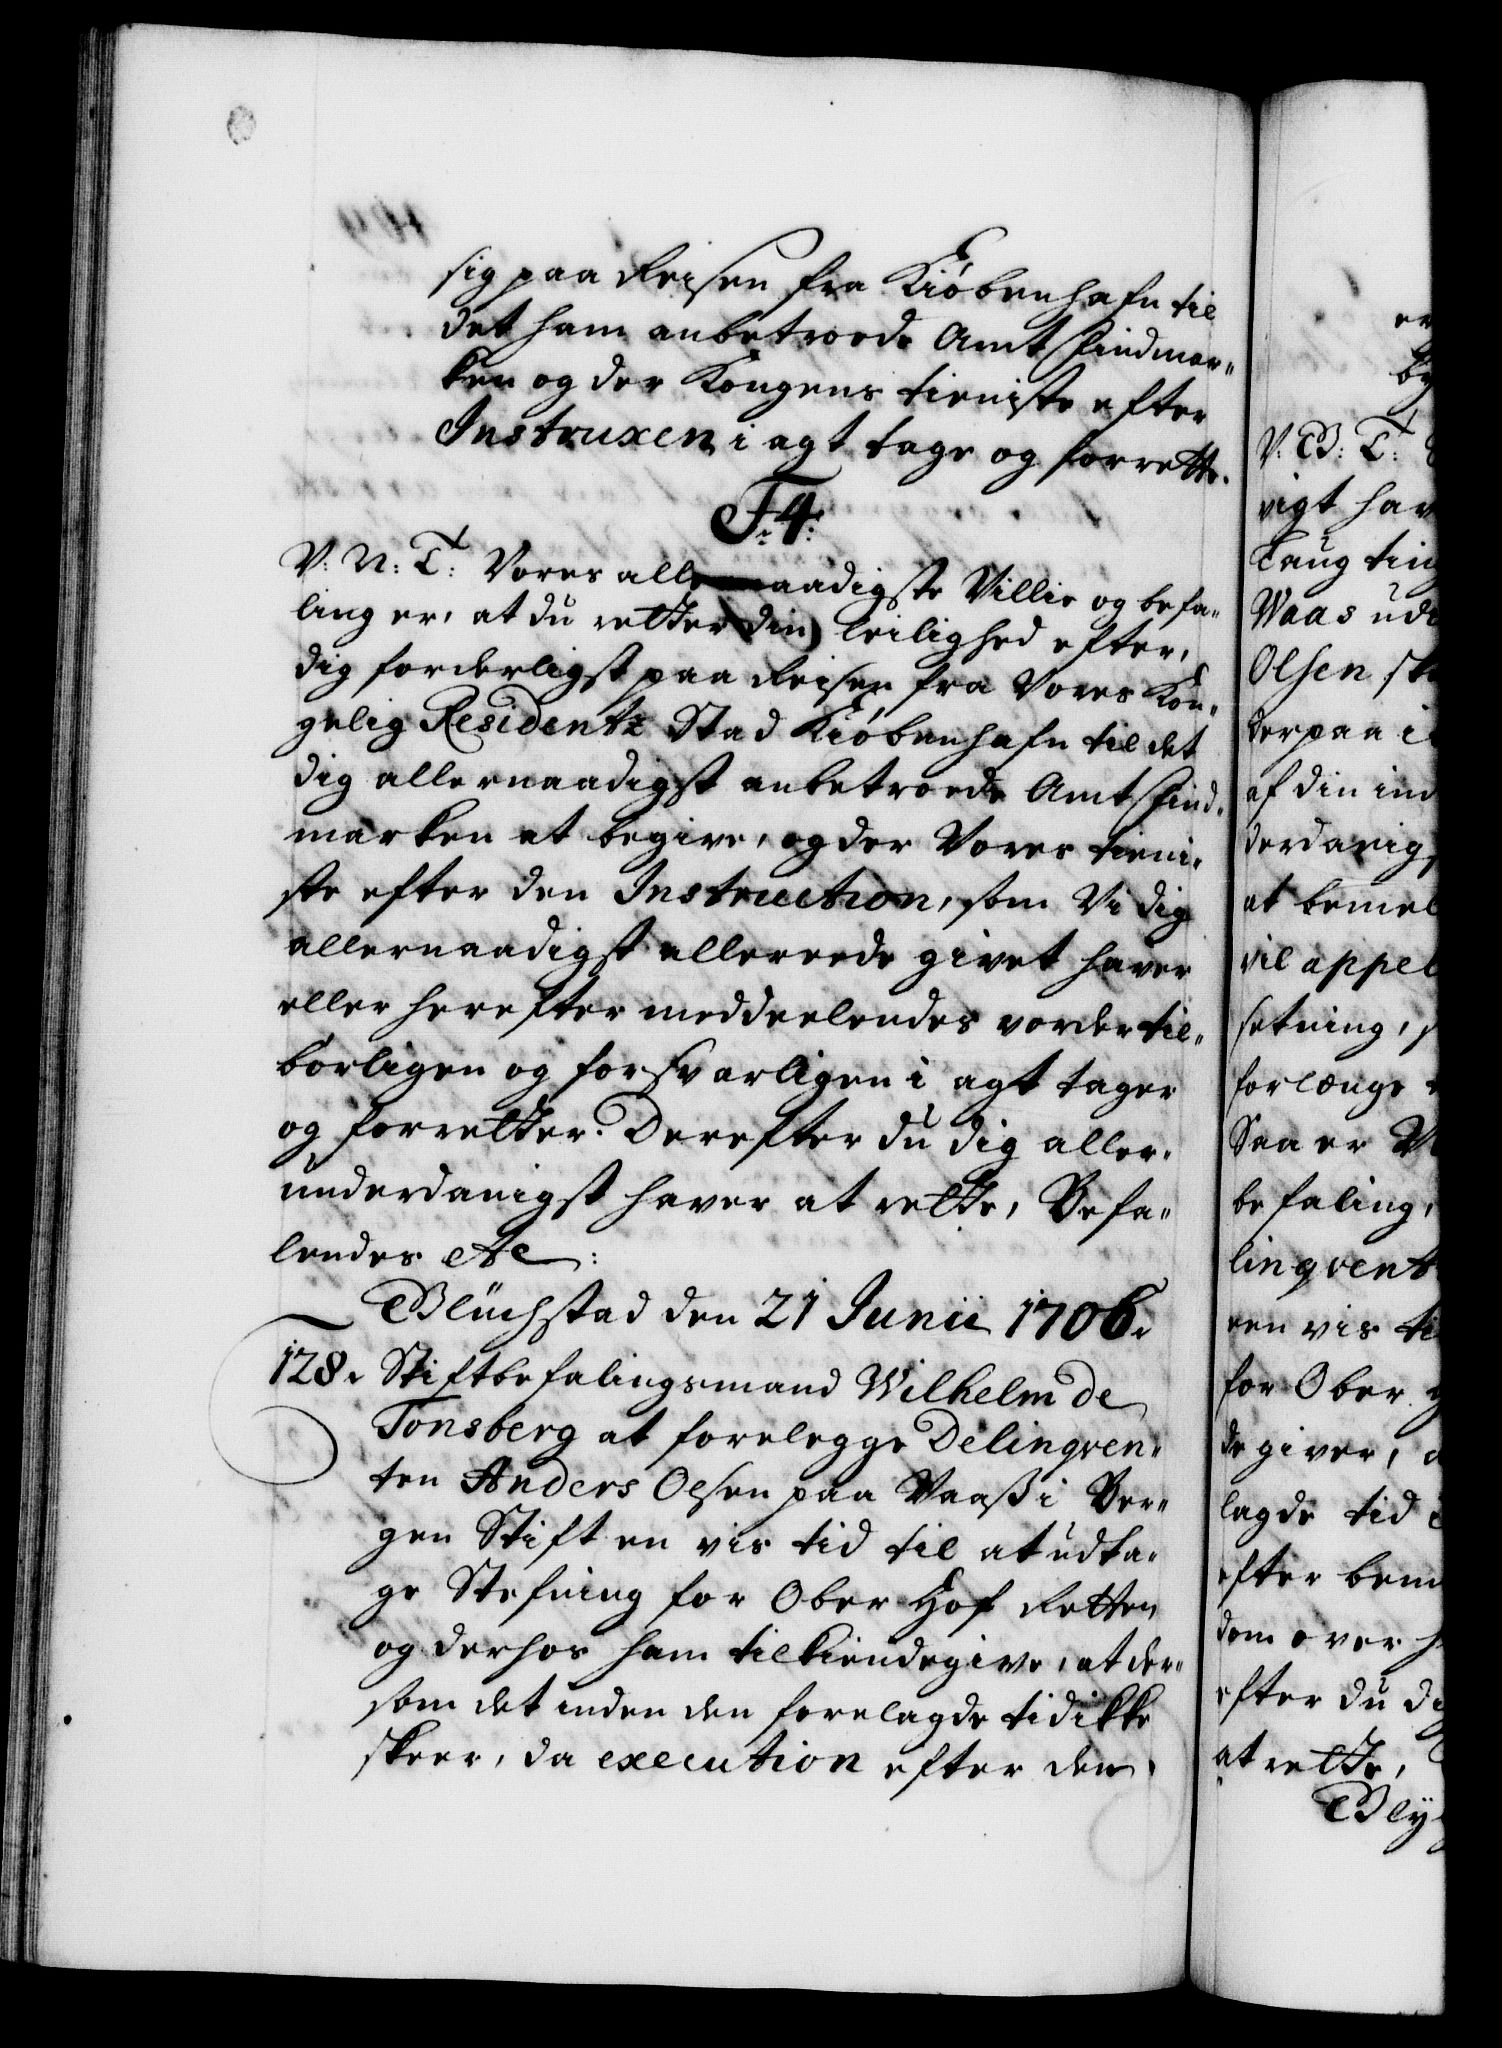 sig paa Reisen fra Kiøbenhafn til
det ham anbetroede Amt Findmar-
ken og der Kongens tieniste efter
Instruxen i agt tage og forrette.
F4:
V: N: T: Vores allernaadigste Villie og befa-
ling er, at du retter din leilighed efter,
dig forderligst paa Reisen fra Vores Kon-
gelig Residentz Stad Kiøbenhafn til det
dig allernaadigst anbetroede Amt Find-
marken at begive, og der Vores tieni-
ste efter den Instruction, som Vi dig
allernaadigst allereede givet haver
eller herefter meddeelendes vorder til-
børligen og forsvarligen i agt tager
og forretter. Derefter du dig aller-
underdanigst haver at rette, Befa-
lendes etc:
Glückstad den 21 Junii 1706.
128. Stiftbefalingsmand Wilhelm de
Tonsberg at forelegge Delinqven-
ten Anders Olsen paa Vaaß i Ber-
gen Stift en vis tid til at udta-
ge Stefning for Ober Hof Retten
og derhos ham tilkiendegive, at der-
som det inden den forelagde tid ikke
skeer, da execution efter den
V: G: T:
vigt hav
Laugting
Waas ude
Olsen sk
derpaa i
af din ind
derdanig
at bemel
vil appel
setning, s
forlænge
Saa er V
befaling,
linqvent
een vis ti
for Ober
de giver,
lagde tid
efter bem
dom over h
efter du di
at rette,